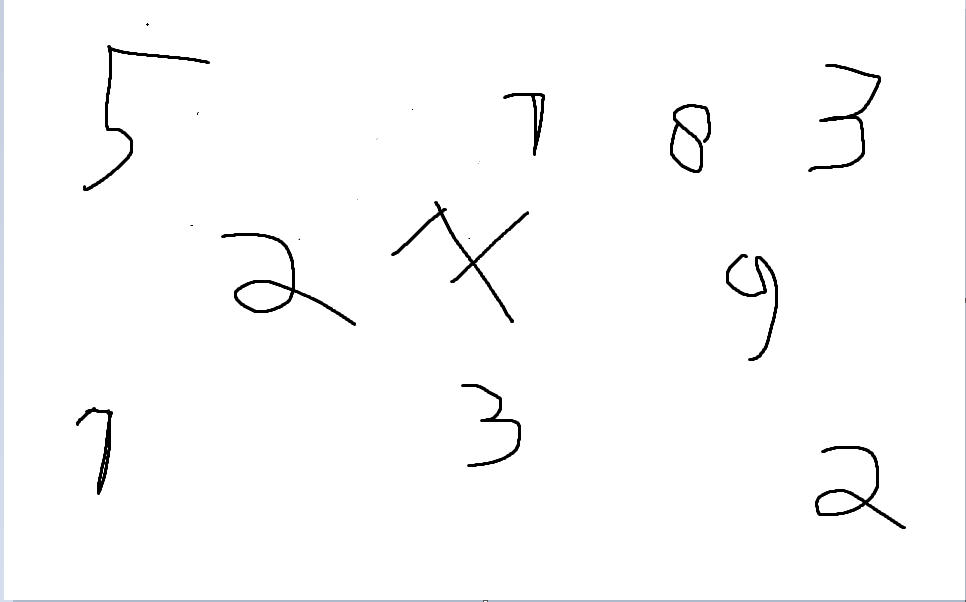 5 7 8 3
2 X 9
7 3 2